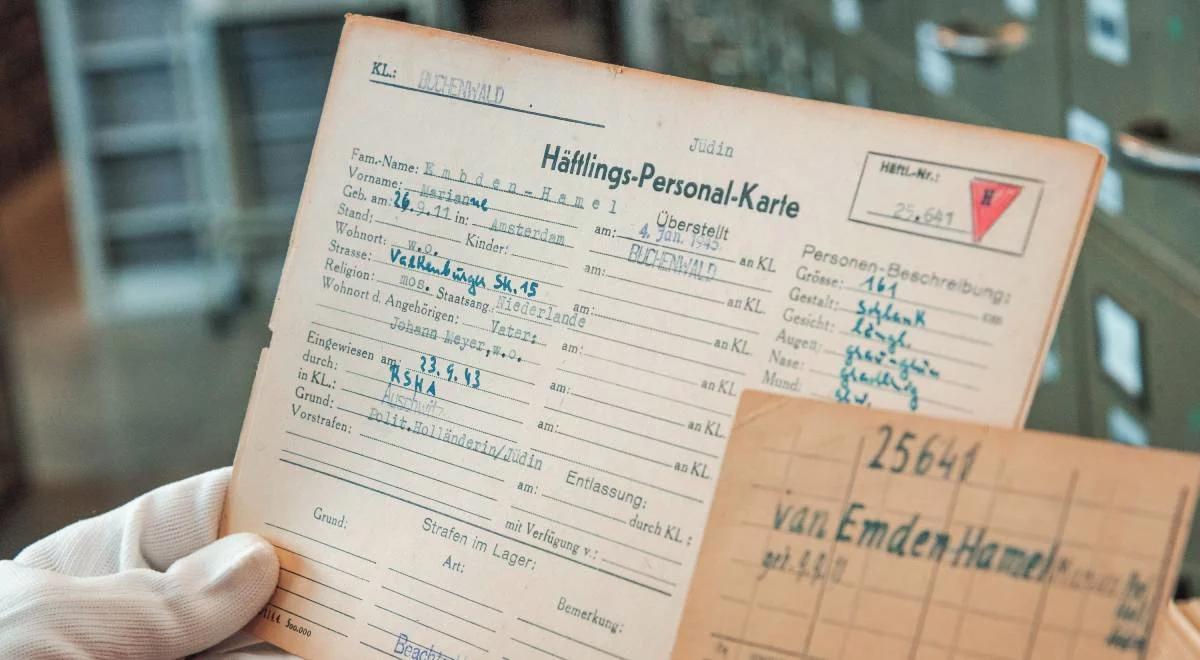 KL.: BUCHENWALD
Jüdin
Häftlings-Personal-Karte
Häftl.-Nr.:
25.641
H
Fam.-Name: Embden-Hamel
Vorname: Marianne
Geb. am: 26.9.11 in: Amsterdam
Stand: Kinder:
Wohnort: w.o.
Strasse: Valkenburger Str. 15
Religion: mos. Staatsang. Niederlande
Wohnort d. Angehörigen: Vater:
Johann Meyer, w.o.
Eingewiesen am: 23.9.43
durch: RSHA
in KL.: Auschwitz
Grund: Polit. Holländerin/Jüdin
Vorstrafen:
Überstellt
am: 4. Jan. 1945 an KL
BUCHENWALD
am: an KL.
am: an KL.
am: an KL.
am: an KL.
am: an KL.
Entlassung:
am: durch KL.:
mit Verfügung v.:
Personen-Beschreibung:
Grösse: 161 cm
Gestalt: schlank
Gesicht: längl.
Augen: graugrün
Nase: gradlinig
Mund:
Strafen im Lager:
Grund: Art: Bemerkung:
500.000
25641
van Emden-Hamel
geb.